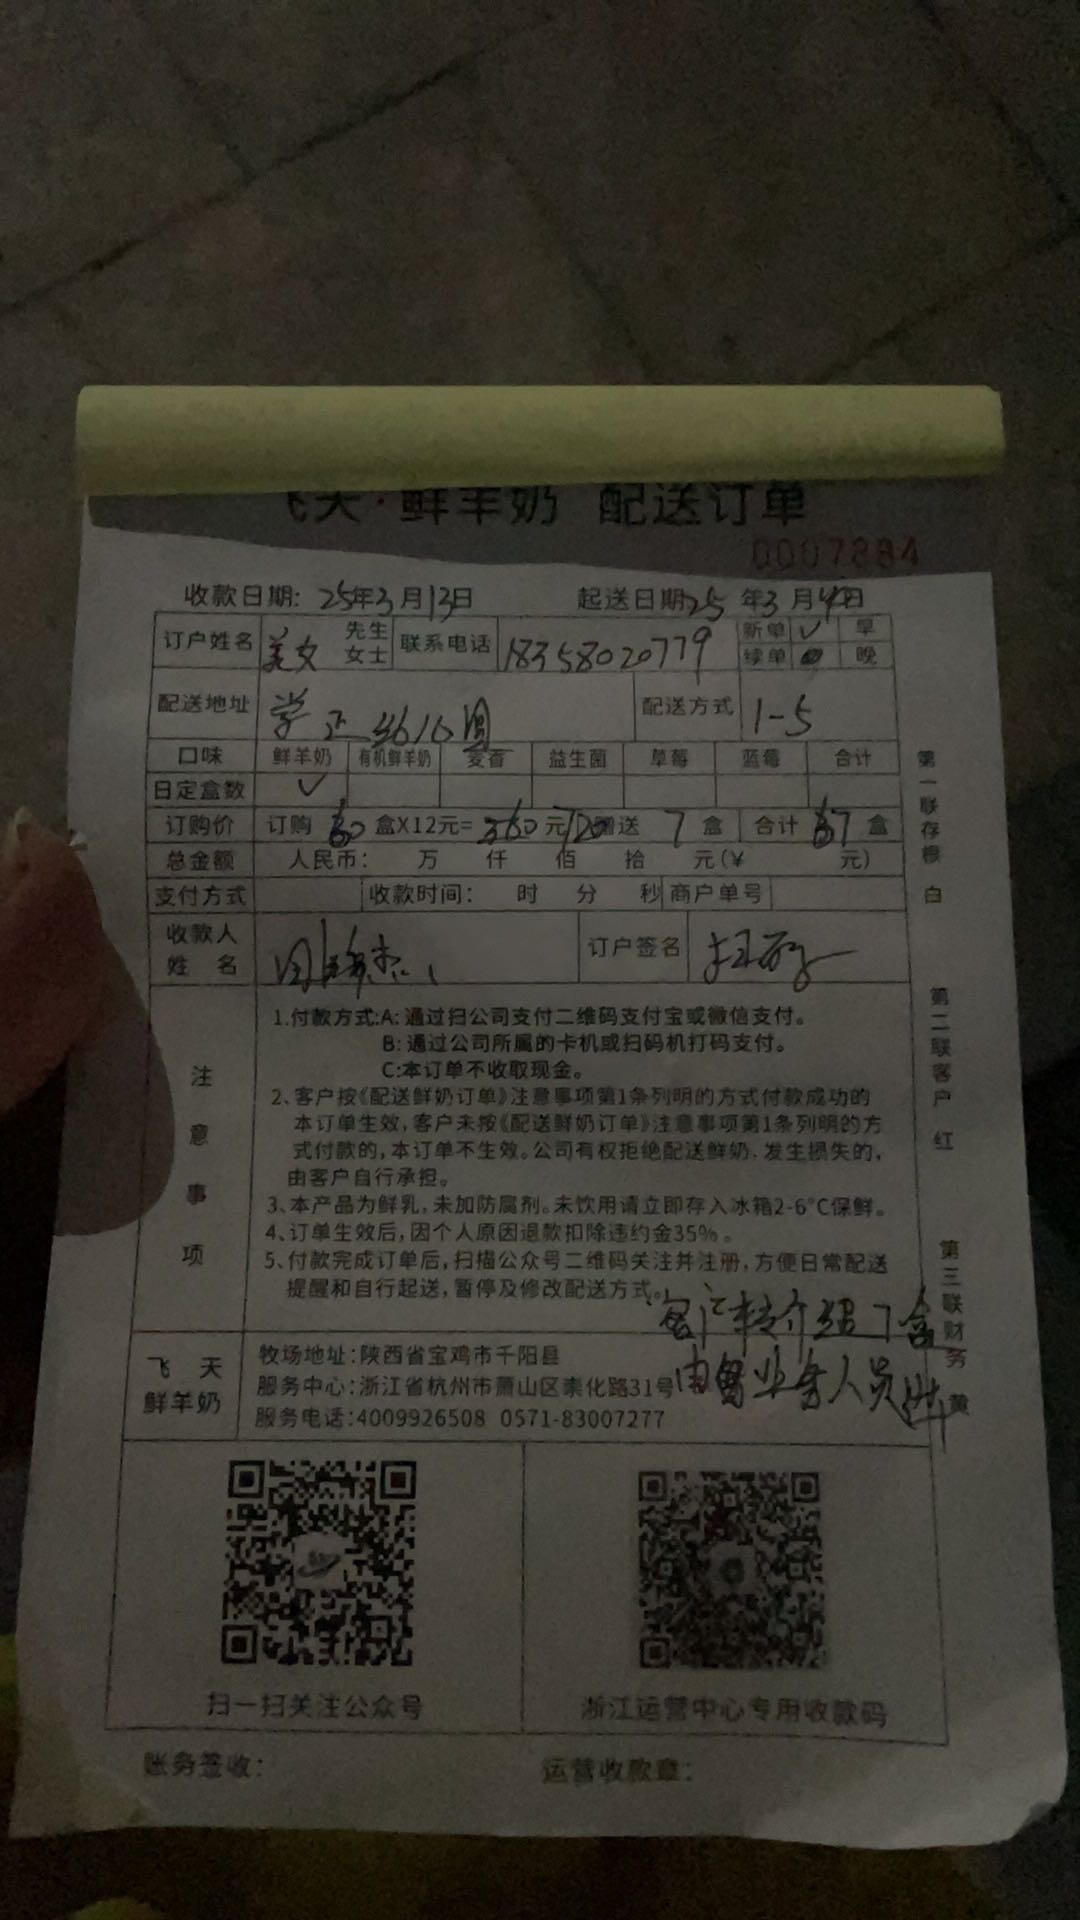 飞天·鲜羊奶 配送订单
0007884
收款日期: 25年3月13日 起送日期25年3月日
订户姓名 美女 先生 女士 联系电话 18358020779 新单 ✓ 早
续单 晚
配送地址 学正 配送方式 1-5
口味 鲜羊奶 有机鲜羊奶 麦香 益生菌 草莓 蓝莓 合计
日定盒数 ✓
订购价 订购 盒X12元= 元 赠送 7 盒 合计 67 盒
总金额 人民币: 万 仟 佰 拾 元(¥ 元)
支付方式 收款时间: 时 分 秒 商户单号
收款人姓名 订户签名
注意事项
1.付款方式:A: 通过扫公司支付二维码支付宝或微信支付。
B: 通过公司所属的卡机或扫码机打码支付。
C:本订单不收取现金。
2、客户按《配送鲜奶订单》注意事项第1条列明的方式付款成功的
本订单生效,客户未按《配送鲜奶订单》注意事项第1条列明的方
式付款的,本订单不生效。公司有权拒绝配送鲜奶,发生损失的,
由客户自行承担。
3、本产品为鲜乳,未加防腐剂。未饮用请立即存入冰箱2-6°C保鲜。
4、订单生效后,因个人原因退款扣除违约金35%。
5、付款完成订单后,扫描公众号二维码关注并注册,方便日常配送
提醒和自行起送,暂停及修改配送方式。
转介绍7盒
由 业务人员
飞天鲜羊奶
牧场地址:陕西省宝鸡市千阳县
服务中心:浙江省杭州市萧山区崇化路31号
服务电话:4009926508 0571-83007277
扫一扫关注公众号 浙江运营中心专用收款码
账务签收: 运营收款章:
第一联存根 白
第二联客户 红
第三联财务 黄